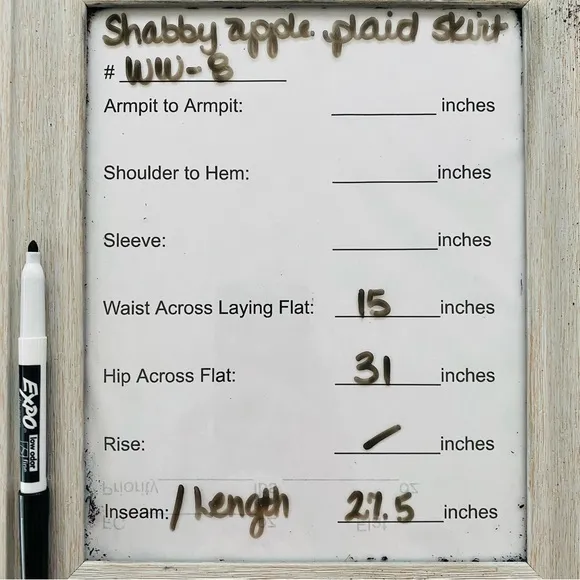 Shabby apple plaid skirt
# WW-8
Armpit to Armpit: inches
Shoulder to Hem: inches
Sleeve: inches
Waist Across Laying Flat: 15 inches
Hip Across Flat: 31 inches
Rise: / inches
Priority lbs oz
Inseam: / Length 27.5 inches
FC oz Flat
EXPO
low odor